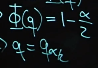 Φ(q) = 1 - α/2
q = q_{α/2}